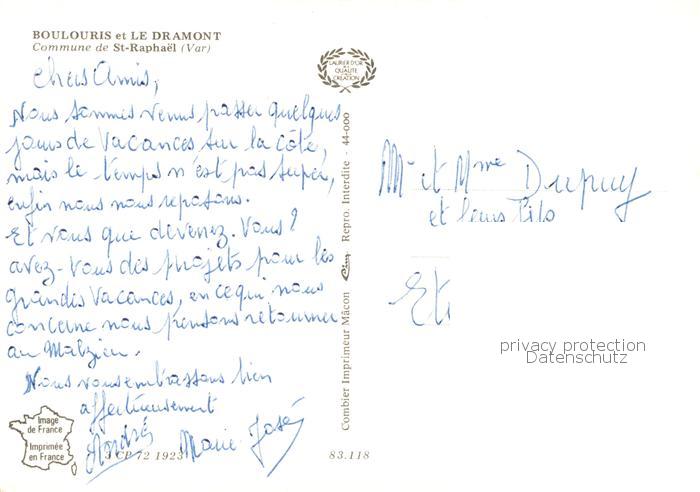 BOULOURIS et LE DRAMONT
Commune de St-Raphaël (Var)
LAURIER D'OR
DE LA
QUALITÉ
CRÉATION
Chers Amis,
Nous sommes venus passer quelques
jours de Vacances sur la côte,
mais le temps n'est pas super,
enfin nous nous reposons.
Et vous que devenez-Vous?
avez-vous des projets pour les
grandes Vacances, en ce qui nous
concerne nous pensons retourner
au Malzieu.
Nous vous embrassons bien
affectueusement
André Marie José
Mr et Mme Dupuy
et leurs fils
Combier Imprimeur Mâcon Cim Repro. Interdite - 44-000
Image
de France
Imprimée
en France
3 CP 72 1923
83.118
privacy protection
Datenschutz